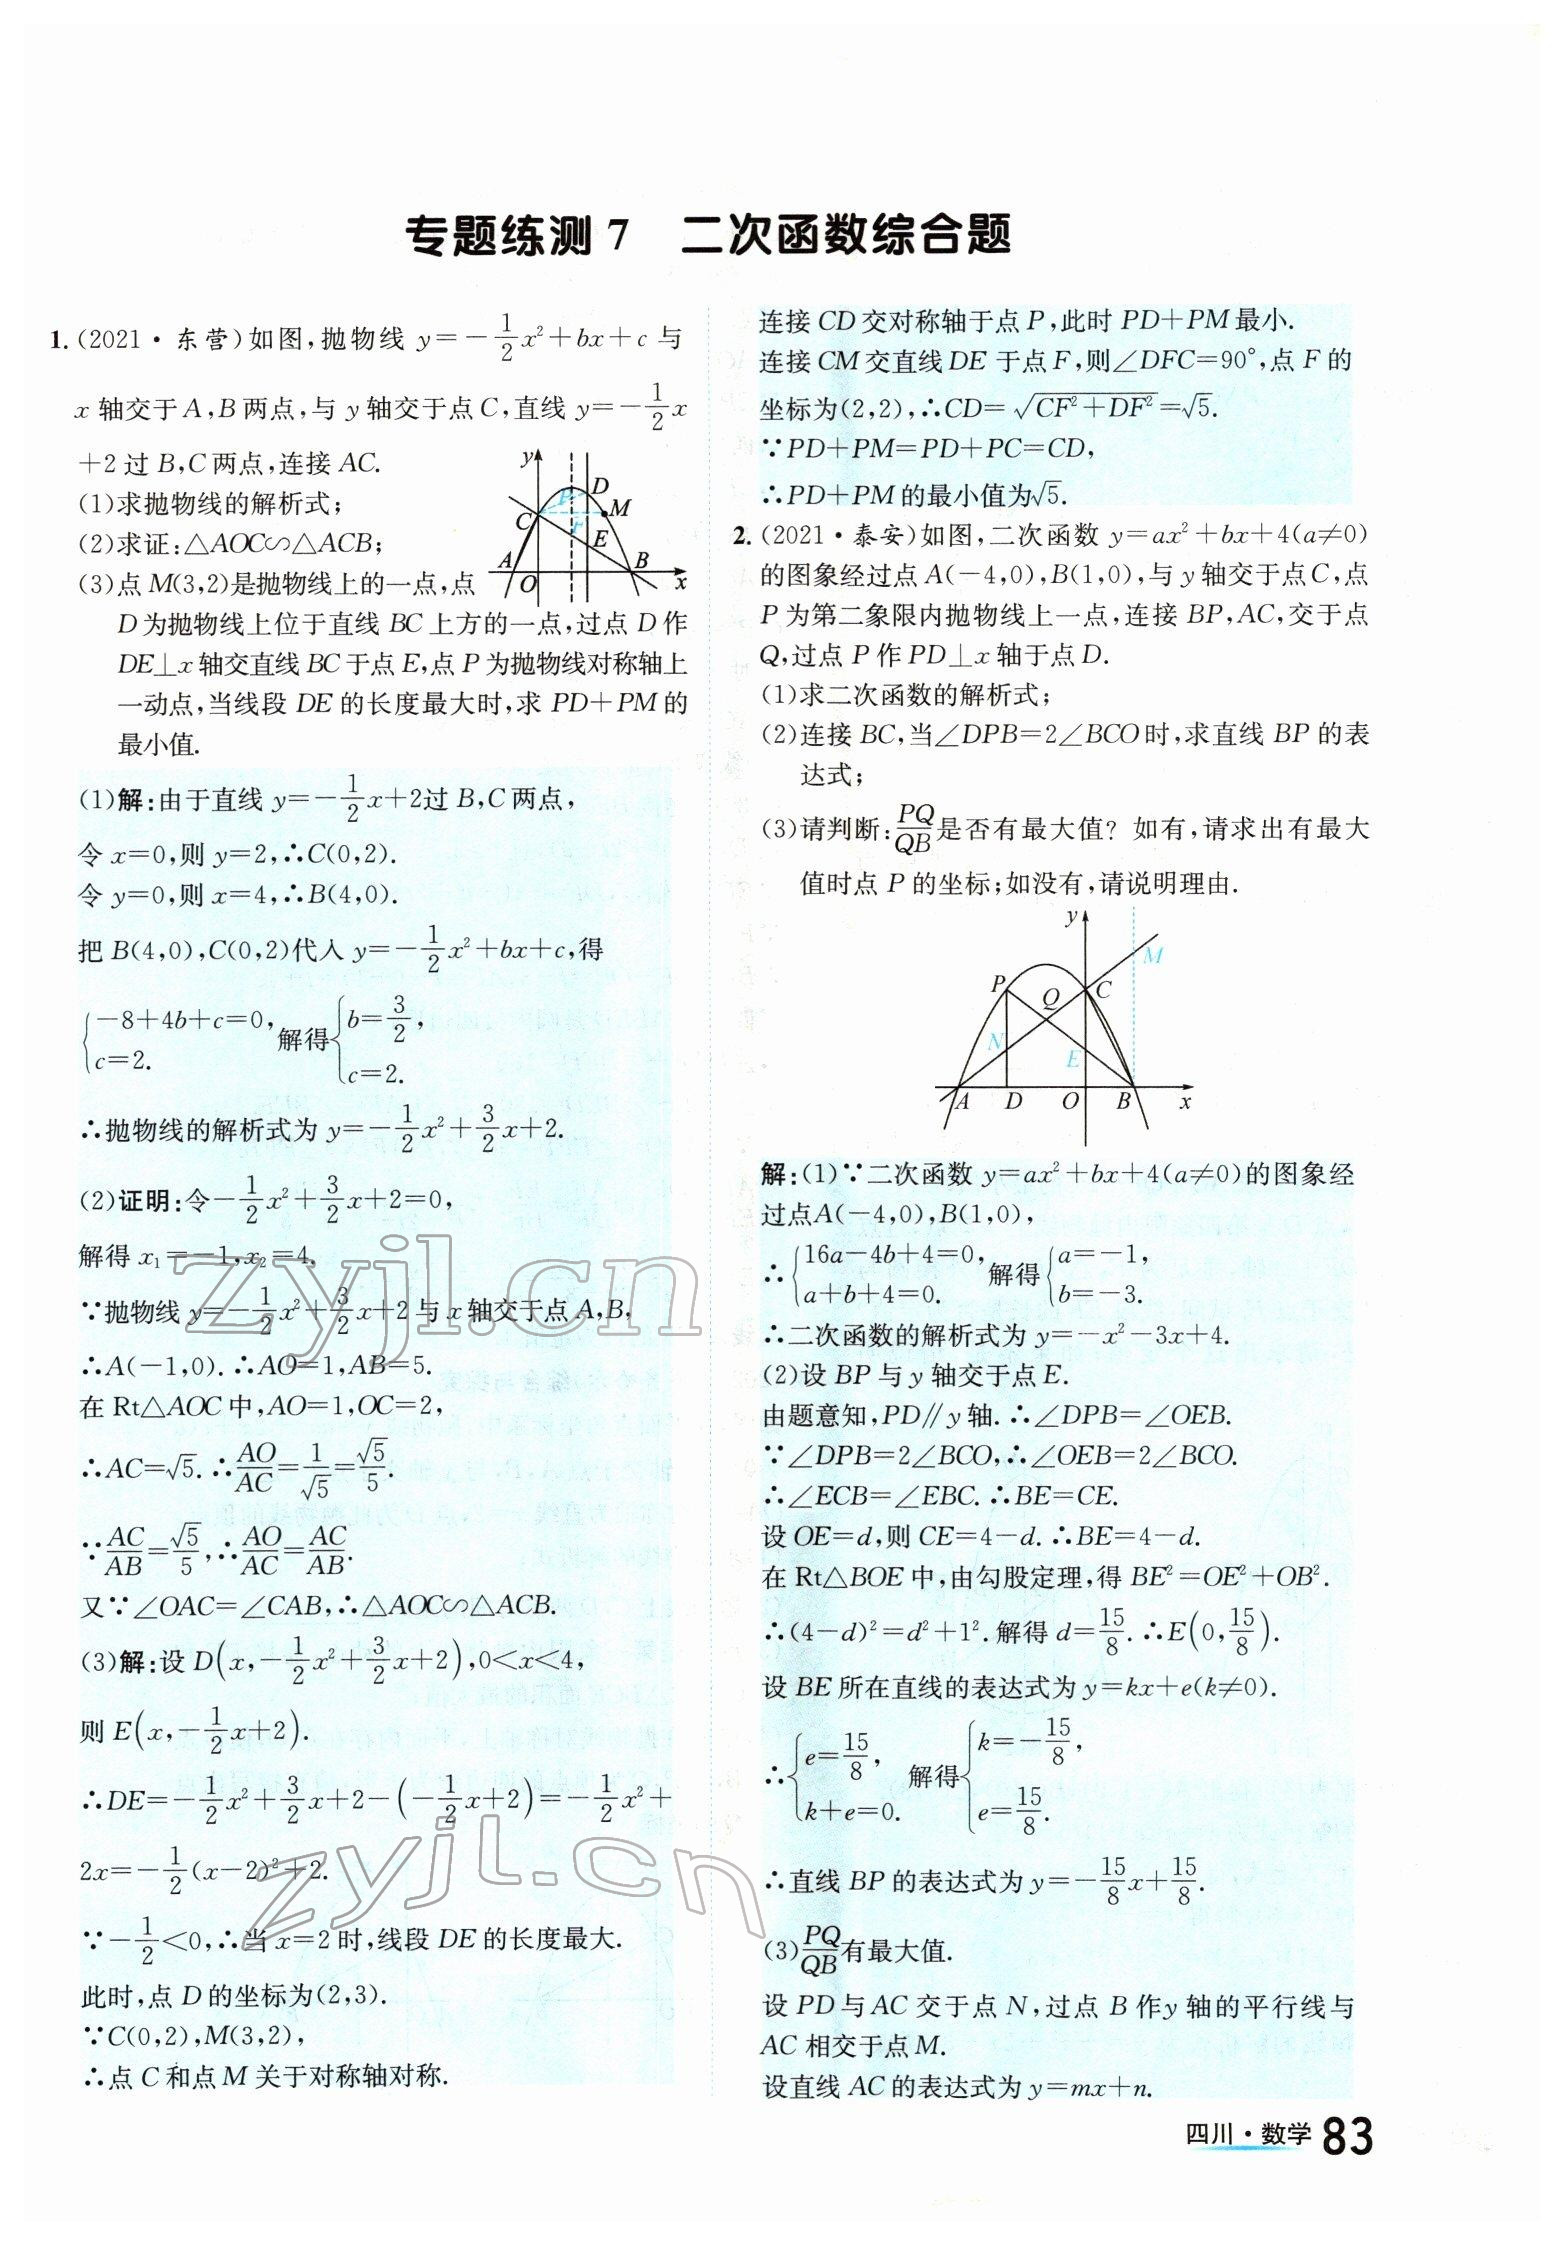 专题练测 7 二次函数综合题
1. (2021·东营)如图,抛物线 y=-1/2x²+bx+c 与
x 轴交于A,B两点,与 y 轴交于点C,直线 y=-1/2x
+2过 B,C两点,连接 AC.
(1)求抛物线的解析式;
(2)求证:△AOC∽△ACB;
(3)点 M(3,2)是抛物线上的一点,点
D为抛物线上位于直线 BC 上方的一点,过点 D 作
DE⊥x 轴交直线BC于点E,点 P 为抛物线对称轴上
一动点,当线段 DE 的长度最大时,求 PD+PM 的
最小值.
y
D
P
C
M
F
E
A
O
B
x
(1)解:由于直线 y=-1/2x+2过 B,C 两点,
令 x=0,则 y=2,∴C(0,2).
令 y=0,则 x=4,∴B(4,0).
把 B(4,0),C(0,2)代入 y=-1/2x²+bx+c,得
{-8+4b+c=0, c=2. 解得{b=3/2, c=2.
∴抛物线的解析式为 y=-1/2x²+3/2x+2.
(2)证明:令-1/2x²+3/2x+2=0,
解得 x₁=-1,x₂=4.
∵抛物线 y=-1/2x²+3/2x+2 与 x 轴交于点 A,B,
∴A(-1,0).∴AO=1,AB=5.
在 Rt△AOC 中,AO=1,OC=2,
∴AC=√5.∴AO/AC=1/√5=√5/5.
∵AC/AB=√5/5,∴AO/AC=AC/AB.
又∵∠OAC=∠CAB,∴△AOC∽△ACB.
(3)解:设 D(x,-1/2x²+3/2x+2),0<x<4,
则 E(x,-1/2x+2).
∴DE=-1/2x²+3/2x+2-(-1/2x+2)=-1/2x²+
2x=-1/2(x-2)²+2.
∵-1/2<0,∴当 x=2 时,线段 DE 的长度最大.
此时,点 D 的坐标为(2,3).
∵C(0,2),M(3,2),
∴点 C 和点 M 关于对称轴对称.
连接 CD 交对称轴于点 P,此时 PD+PM 最小.
连接 CM 交直线 DE 于点 F,则∠DFC=90°,点 F 的
坐标为(2,2),∴CD=√(CF²+DF²)=√5.
∵PD+PM=PD+PC=CD,
∴PD+PM 的最小值为√5.
2. (2021·泰安)如图,二次函数 y=ax²+bx+4(a≠0)
的图象经过点 A(-4,0),B(1,0),与 y 轴交于点C,点
P 为第二象限内抛物线上一点,连接 BP,AC,交于点
Q,过点 P 作 PD⊥x 轴于点 D.
(1)求二次函数的解析式;
(2)连接 BC,当∠DPB=2∠BCO时,求直线 BP 的表
达式;
(3)请判断:PQ/QB是否有最大值?如有,请求出有最大
值时点 P 的坐标;如没有,请说明理由.
y
M
P
Q
C
N
E
A
D
O
B
x
解:(1)∵二次函数 y=ax²+bx+4(a≠0)的图象经
过点A(-4,0),B(1,0),
∴{16a-4b+4=0, a+b+4=0. 解得{a=-1, b=-3.
∴二次函数的解析式为 y=-x²-3x+4.
(2)设 BP 与 y 轴交于点 E.
由题意知,PD∥y 轴.∴∠DPB=∠OEB.
∵∠DPB=2∠BCO,∴∠OEB=2∠BCO.
∴∠ECB=∠EBC.∴BE=CE.
设 OE=d,则 CE=4-d.∴BE=4-d.
在 Rt△BOE 中,由勾股定理,得 BE²=OE²+OB².
∴(4-d)²=d²+1².解得 d=15/8.∴E(0,15/8).
设 BE 所在直线的表达式为 y=kx+e(k≠0).
∴{e=15/8, k+e=0. 解得{k=-15/8, e=15/8.
∴直线 BP 的表达式为 y=-15/8x+15/8.
(3)PQ/QB有最大值.
设 PD 与 AC 交于点 N,过点 B 作y 轴的平行线与
AC 相交于点M.
设直线 AC 的表达式为 y=mx+n.
zyjl.cn
zyjl.cn
四川·数学 83